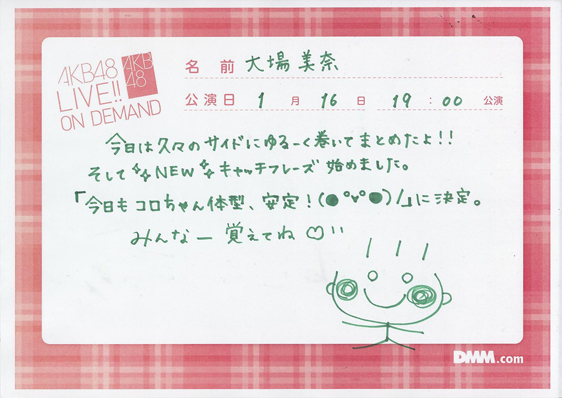 AKB48
LIVE!!
ON DEMAND
AKB
48
名 前 大場 美奈
公演日 1 月 16 日 19 : 00 公演
今日は久々のサイドにゆるーく巻いてまとめたよ!!
そして NEW キャッチフレーズ 始めました。
「今日もコロちゃん体型、安定!(●°∀°●)/」に決定。
みんなー 覚えてね♡
DMM.com